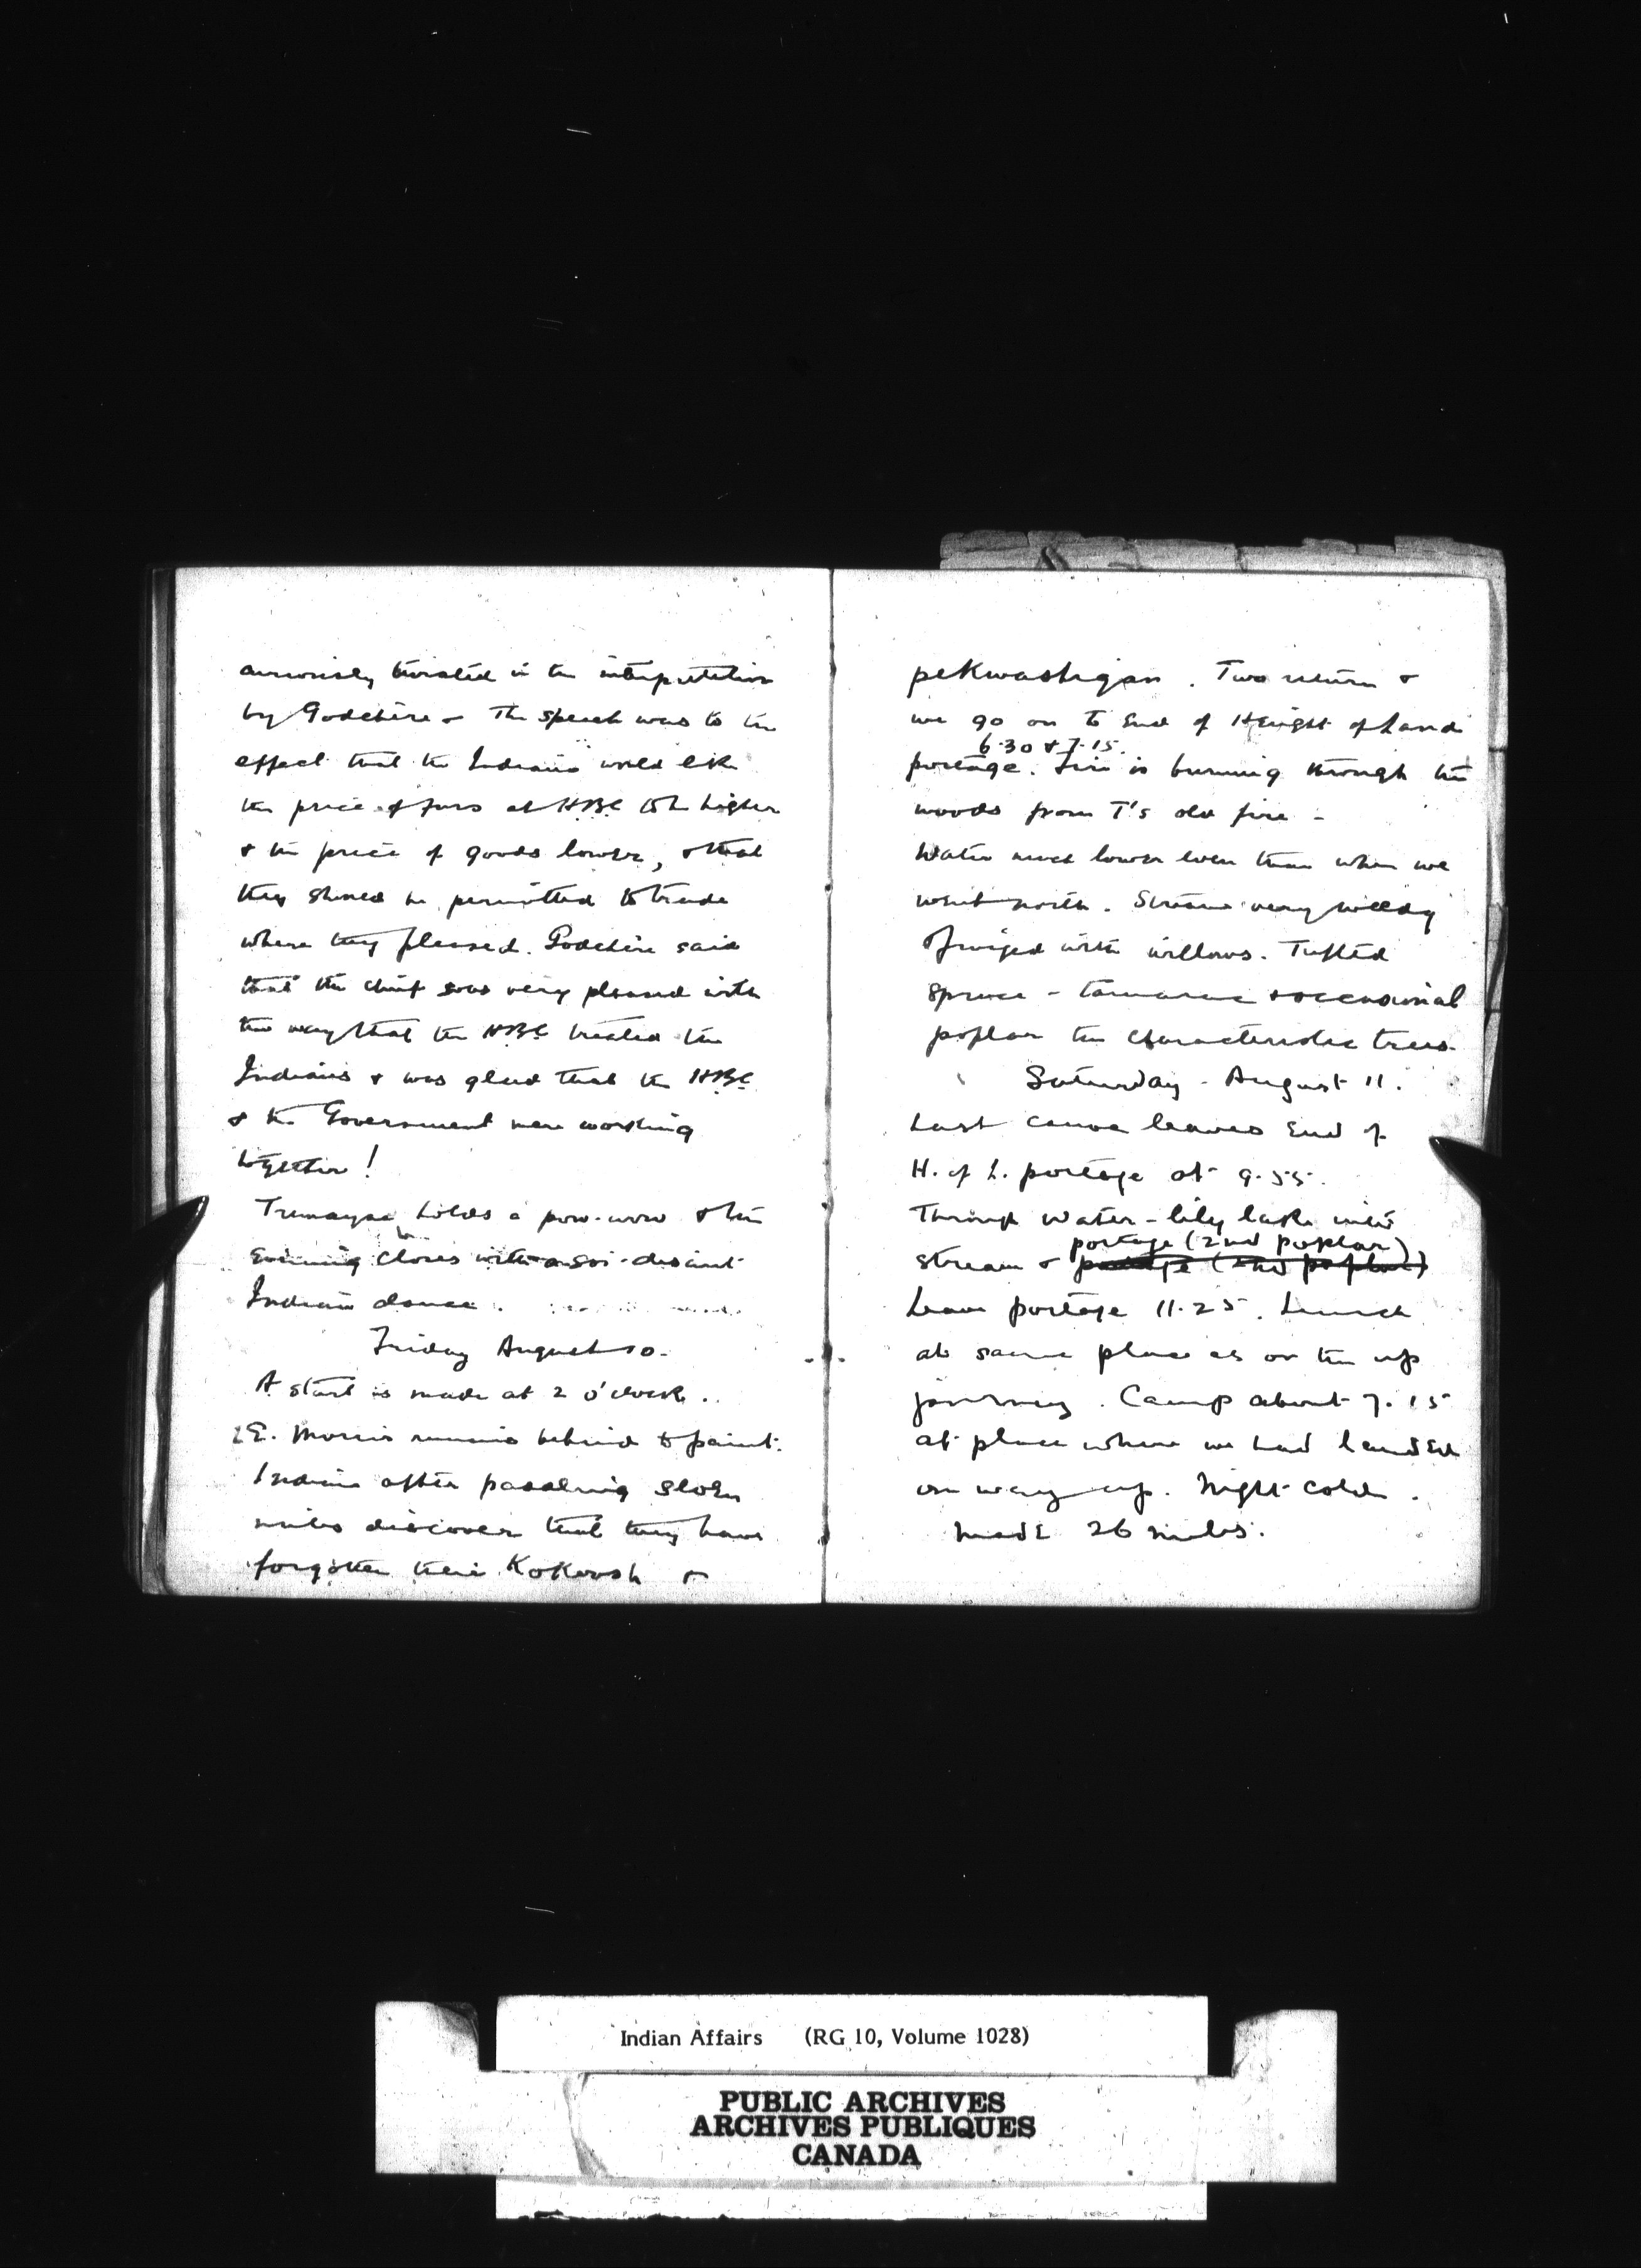 curiously twisted in the interpretation
by Godchere - The speech was to the
effect that the Indians would like
the price of furs at HBC to be higher
& the price of goods lower, & that
they should be permitted to trade
where they pleased. Godchere said
that the chief was very pleased with
the way that the HBC treated the
Indians & was glad that the HBC
& the Government were working
together!
Tremayne holds a pow-wow & the
evening closes with a soi-disant
Indian dance.
Friday August 10.
A start is made at 2 o'clock.
E. Morris remains behind to paint.
Indians after paddling seven
miles discover that they have
forgotten their Kokoosh &
pekwashigan. Two return &
we go on to End of Height of Land
6.30 & 7.15.
portage. Fire is burning through the
woods from T's old fire -
Water much lower even than when we
went north. Stream very weedy
& fringed with willows. Tufted
spruce - tamarac & occasional
poplar the characteristic trees.
Saturday - August 11.
Last canoe leaves End of
H. of L. portage at 9.55.
Through water-lily lake into
portage (2nd poplar)
stream & portage (2nd poplar)
Leave portage 11.25. Lunch
at same place as on the up
journey. Camp about 7.15
at place where we had landed
on way up. Night cold.
Made 26 miles.
Indian Affairs (RG 10, Volume 1028)
PUBLIC ARCHIVES
ARCHIVES PUBLIQUES
CANADA